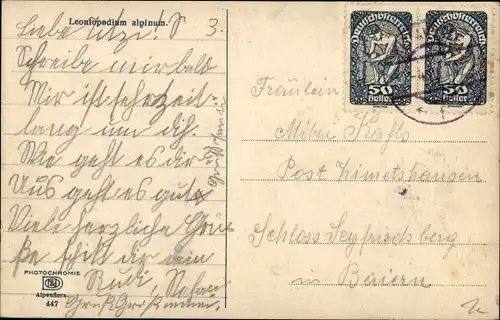 Leontopodium alpinum.
Liebe Mizi! S 3.
Schreibe mir bald
Mir ist sehr zeit
lang um dih.
Wie geht es dir
Uns geht es gut
Viele herzliche Grü-
ße schikt dir dein
Rudi,
PHOTOCHROMIE
Alpenflora
447
Deutschösterreich
50
Heller
Deutschösterreich
50
Heller
Fräulein
Post Zimetshausen
Schloss Seyfriedsberg
in Baiern